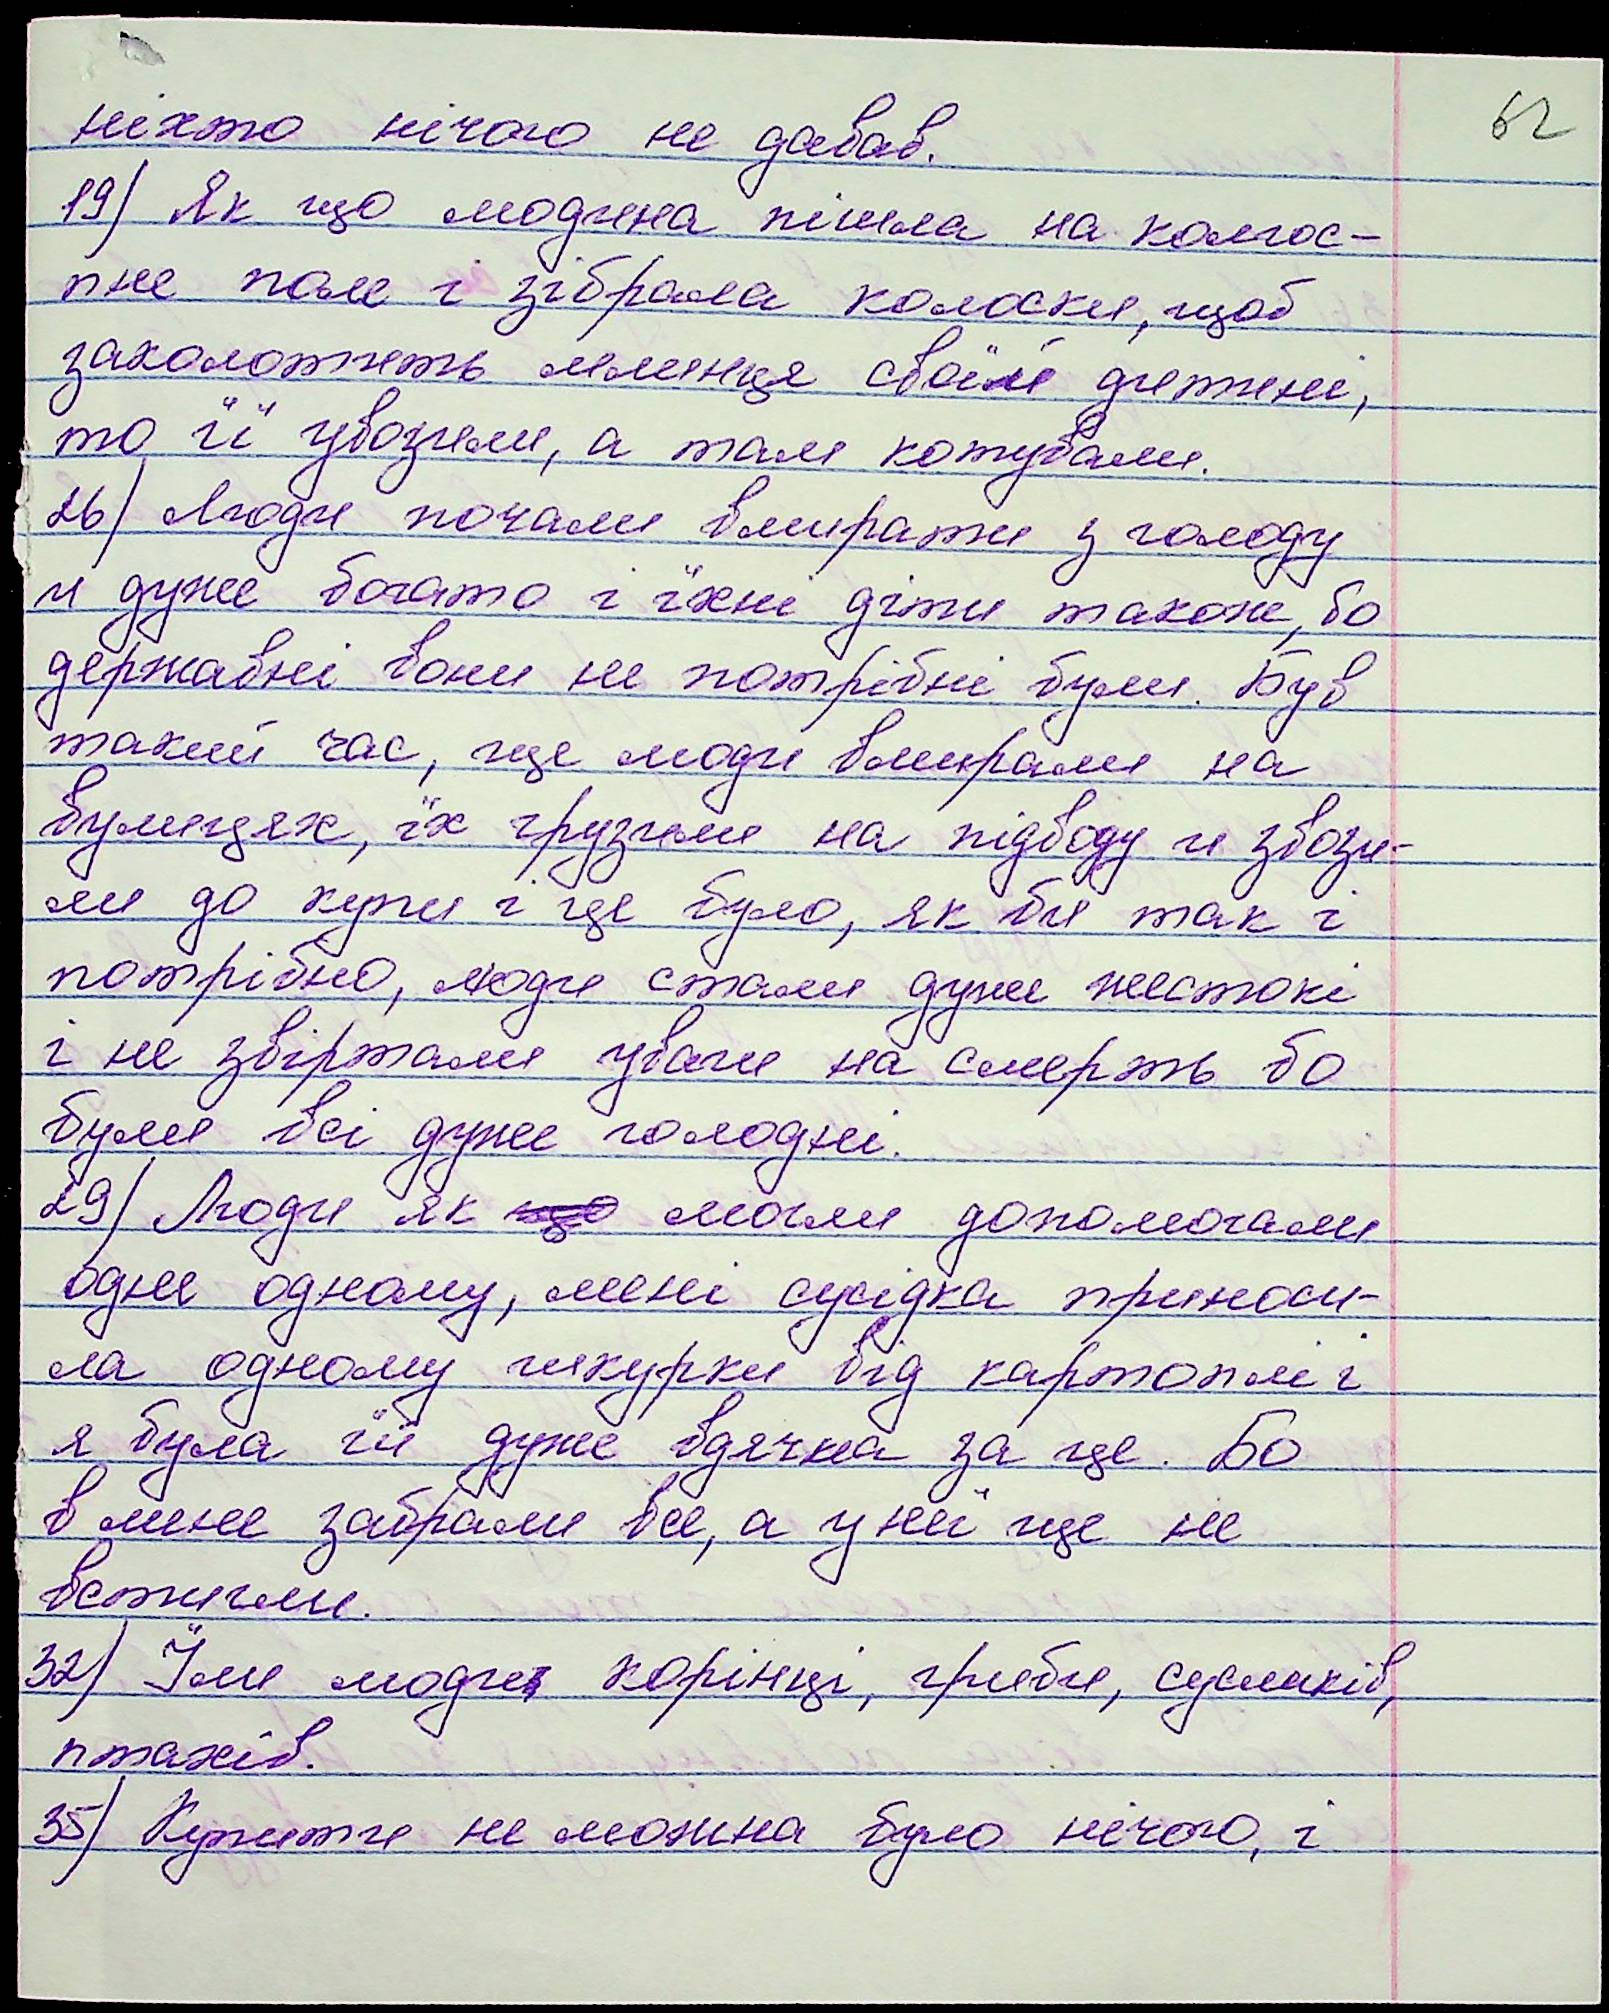 62
ніхто нічого не давав.
19) Як що людина пішла на колгос-
пне поле і зібрала колоски, щоб
заколотить млинця своїй дитині,
то її увозили, а там катували.
26) Люди почали вмирати з голоду
и дуже богато і їхні діти також, бо
державні вони не потрібні були. Був
такий час, ще люди вмирали на
вулицях, їх грузили на підводу и звози-
ли до купи і це було, як би так і
потрібно, люди стали дуже жестокі
і не звіртали уваги на смерть бо
були всі дуже голодні.
29) Люди як що могли допомогали
одне одному, мені сусідка приноси-
ла одному шкурки від картоплі і
я була їй дуже вдячна за це. Бо
в мене забрали все, а у неї ще не
встигли.
32) Їли люди корінці, гриби, сусликів,
птахів.
35) Купити не можна було нічого, і